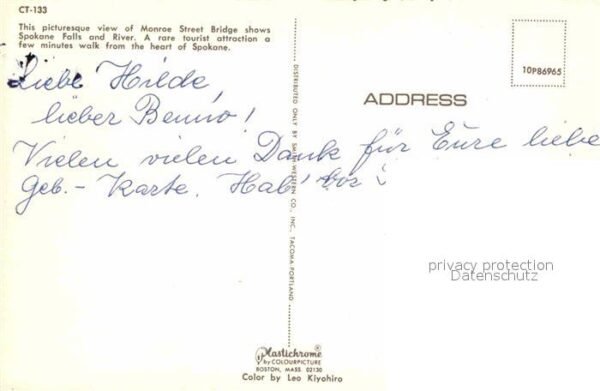 CT-133
This picturesque view of Monroe Street Bridge shows
Spokane Falls and River. A rare tourist attraction a
few minutes walk from the heart of Spokane.
Liebe Hilde,
lieber Benno!
Vielen vielen Dank für Eure liebe
Geb.- Karte. Hab'
10P86965
ADDRESS
DISTRIBUTED ONLY BY CO., INC., TACOMA-PORTLAND
privacy protection
Datenschutz
Plastichrome®
by COLOURPICTURE
BOSTON, MASS 02130
Color by Leo Kiyohiro